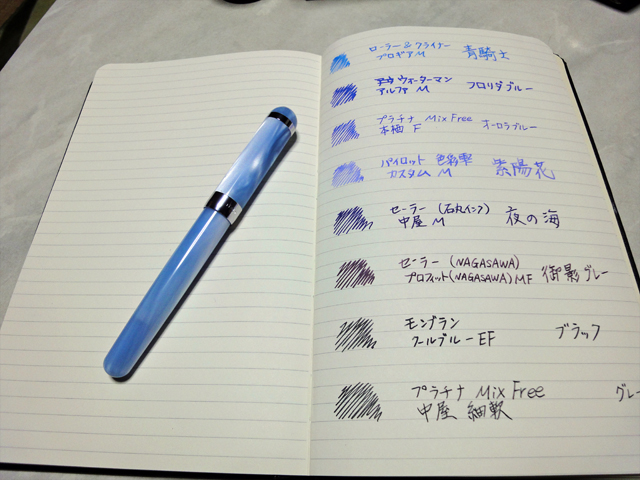 ローラー&クライナー
プロギア M 青騎士
ウォーターマン
アルファ M フロリダブルー
プラチナ Mix Free
本栖 F オーロラブルー
パイロット 色彩雫
カスタム M 紫陽花
セーラー (石丸インク)
中屋 M 夜の海
セーラー (NAGASAWA)
プロフィット(NAGASAWA) MF 御影グレー
モンブラン
クールブルー EF ブラック
プラチナ Mix Free グレー
中屋 細軟